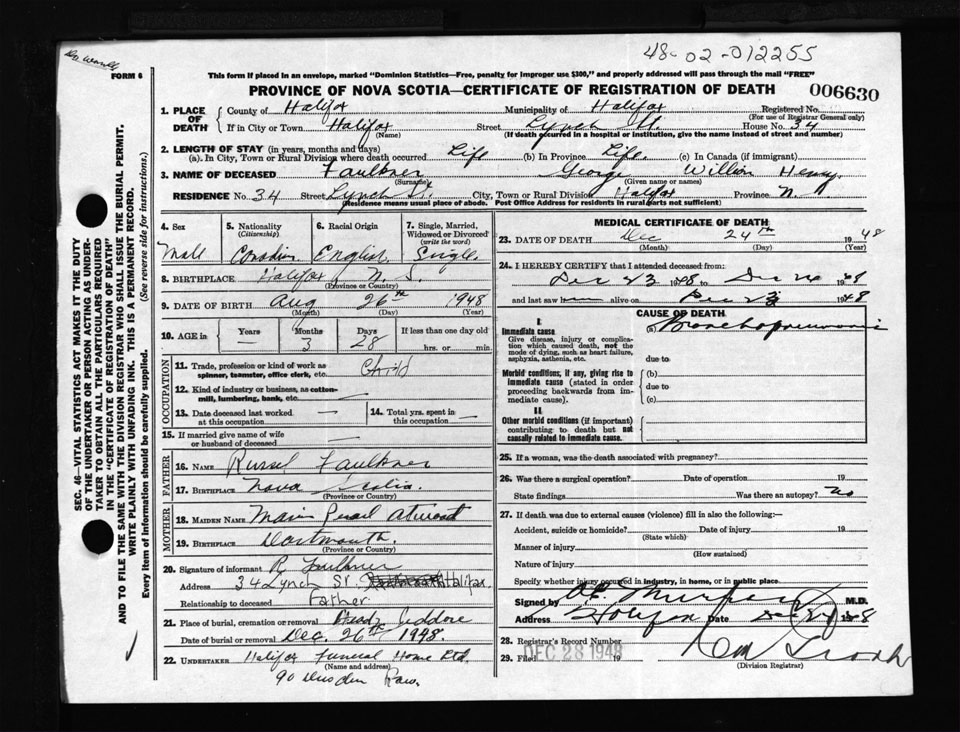 48-02-012255
FORM 6
This form if placed in an envelope, marked "Dominion Statistics—Free, penalty for improper use $300," and properly addressed will pass through the mail "FREE"
PROVINCE OF NOVA SCOTIA—CERTIFICATE OF REGISTRATION OF DEATH 006630
1. PLACE OF DEATH
County of Halifax Municipality of Halifax Registered No.
(For use of Registrar General only)
If in City or Town Halifax Street Lynch St. House No. 34
(Name) (If death occurred in a hospital or institution, give the name instead of street and number)
2. LENGTH OF STAY (in years, months and days)
(a). In City, Town or Rural Division where death occurred Life (b) In Province Life. (c) In Canada (if immigrant)
3. NAME OF DECEASED Faulkner George William Henry.
(Surname) (Given name or names)
RESIDENCE No. 34 Street Lynch St. City, Town or Rural Division Halifax Province N. S.
(Residence means usual place of abode. Post Office Address for residents in rural parts not sufficient)
4. Sex
Male
5. Nationality
(Citizenship)
Canadian
6. Racial Origin
English
7. Single, Married, Widowed or Divorced
(write the word)
Single
8. BIRTHPLACE Halifax N. S.
(Province or Country)
9. DATE OF BIRTH Aug 26th 1948
(Month) (Day) (Year)
10. AGE in
Years Months Days If less than one day old
— 3 28 hrs. or min
OCCUPATION
11. Trade, profession or kind of work as Child
spinner, teamster, office clerk, etc.
12. Kind of industry or business, as cotton-
mill, lumbering, bank, etc. —
13. Date deceased last worked
at this occupation —
14. Total yrs. spent in
this occupation —
15. If married give name of wife
or husband of deceased —
FATHER
16. NAME Russel Faulkner
17. BIRTHPLACE Nova Scotia.
(Province or Country)
MOTHER
18. MAIDEN NAME Pearl
19. BIRTHPLACE Dartmouth.
(Province or Country)
20. Signature of informant R Faulkner
Address 34 Lynch St. Halifax.
Relationship to deceased Father
21. Place of burial, cremation or removal Head Jeddore
Date of burial or removal Dec. 26th 1948.
22. UNDERTAKER Halifax Funeral Home Ltd.
(Name and address)
90 Row.
MEDICAL CERTIFICATE OF DEATH
23. DATE OF DEATH Dec 24th 1948
(Month) (Day) (Year)
24. I HEREBY CERTIFY that I attended deceased from:
Dec 23 1948 to Dec 24 1948
and last saw alive on Dec 23 1948
CAUSE OF DEATH
I.
Immediate cause (a) Bronchopneumonia
Give disease, injury or complica-
tion which caused death, not the
mode of dying, such as heart failure,
asphyxia, asthenia, etc. due to
Morbid conditions, if any, giving rise to (b)
immediate cause (stated in order due to
proceeding backwards from im-
mediate cause). (c)
II.
Other morbid conditions (if important)
contributing to death but not
causally related to immediate cause.
25. If a woman, was the death associated with pregnancy?
26. Was there a surgical operation? Date of operation 19
State findings Was there an autopsy? no
27. If death was due to external causes (violence) fill in also the following:—
Accident, suicide or homicide? Date of injury 19
(State which)
Manner of injury
(How sustained)
Nature of injury
Specify whether injury occurred in industry, in home, or in public place
Signed by M.D.
Address Halifax Date Dec 1948
28. Registrar's Record Number
29. Filed DEC 28 1948 19
(Division Registrar)
SEC. 46—VITAL STATISTICS ACT MAKES IT THE DUTY
OF THE UNDERTAKER OR PERSON ACTING AS UNDER-
TAKER TO OBTAIN ALL THE PARTICULARS REQUIRED
IN THE "CERTIFICATE OF REGISTRATION OF DEATH"
AND TO FILE THE SAME WITH THE DIVISION REGISTRAR WHO SHALL ISSUE THE BURIAL PERMIT.
WRITE PLAINLY WITH UNFADING INK. THIS IS A PERMANENT RECORD.
Every item of Information should be carefully supplied. (See reverse side for instructions.)